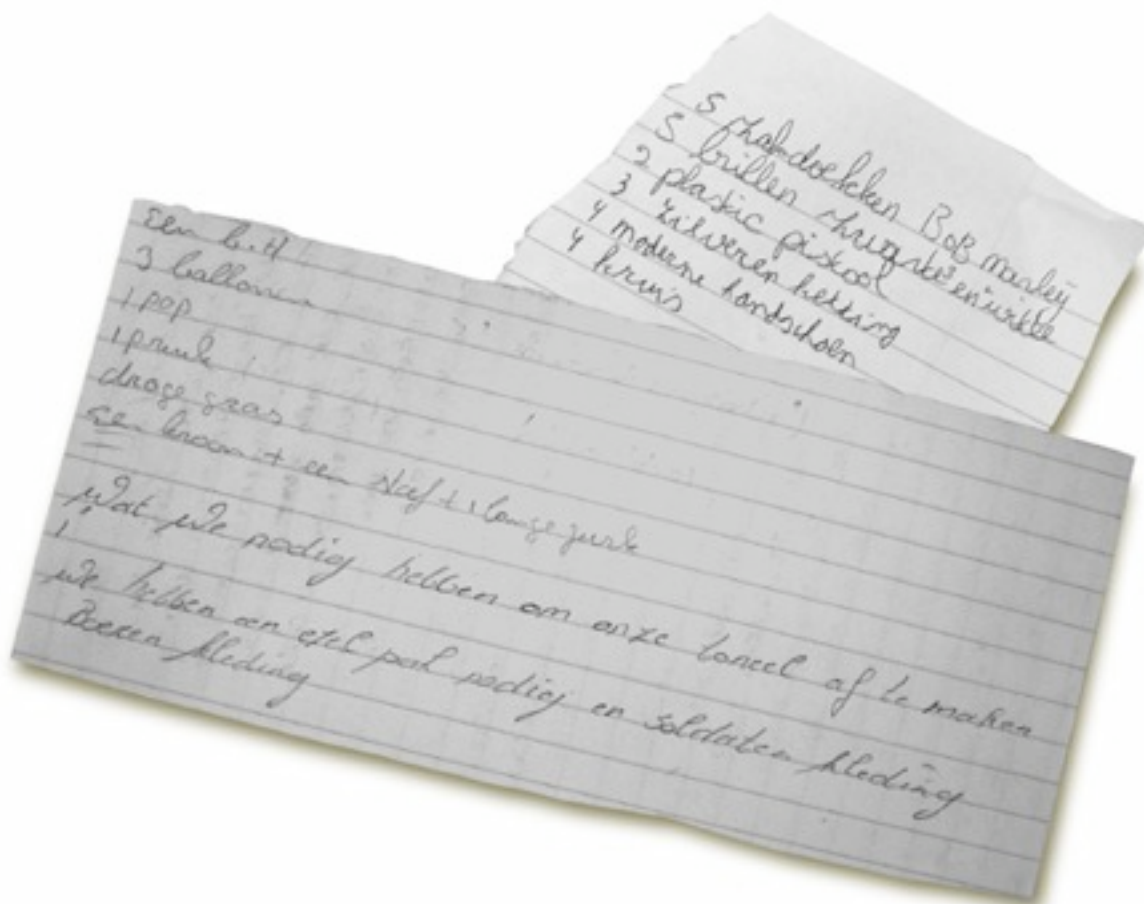 5 zakdoekken Bob Marley
5 brillen zwarte en witte
2 plastic pistool
3 zilveren ketting
4 moderne handschoen
4 kruis
een
3 ballonen
1 pop
1 pruik
droge gras
een kroon + een staf + 1 lange jurk
wat we nodig hebben om onze toneel af te maken
1
we hebben een ezel pak nodig en soldaten kleding
Boeren kleding